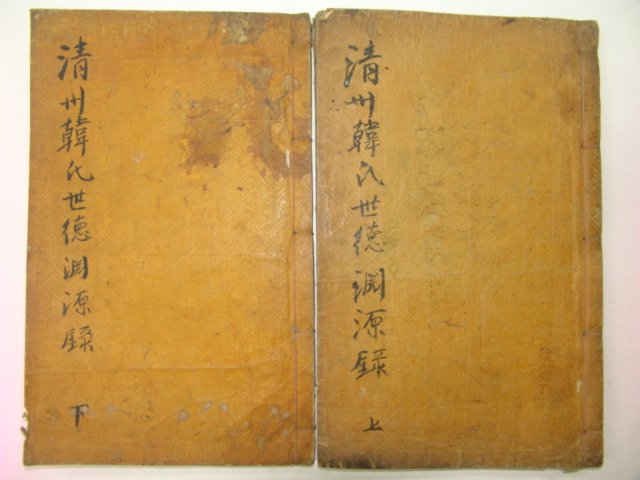 清州韓氏世德淵源錄
上
清州韓氏世德淵源錄
下